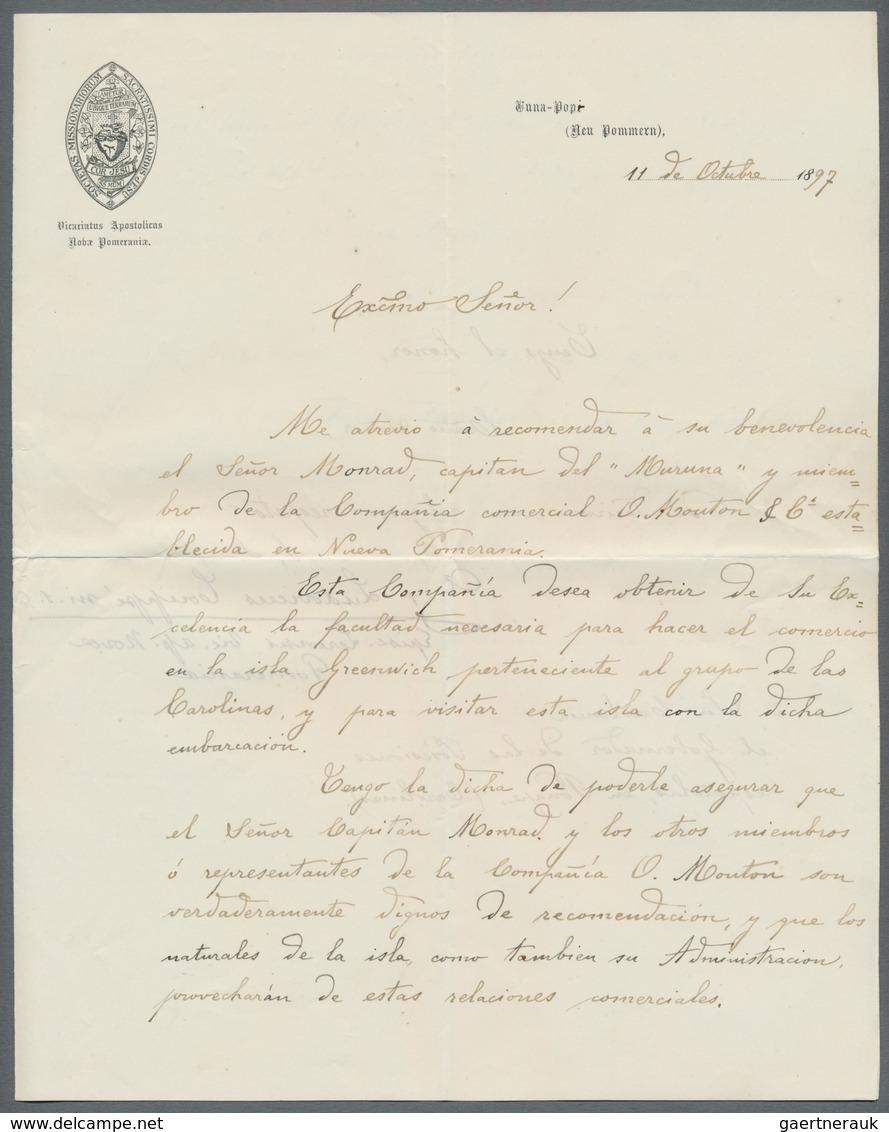 SOCIETAS MISSIONARIORUM SACRATISSIMI CORDIS JESU
AMETUR
UBIQUE TERRARUM
COR JESU
SS MCMI
Vicariatus Apostolicus
Novæ Pomeraniæ.
Vuna-Popi
(Neu Pommern),
11 de Octubre 1897
Excmo Señor!
Me atrevio à recomendar à su benevolencia
el Señor Monrad, capitan del "Muruna" y miem=
bro de la Compañia comercial O. Mouton & Cs esta=
blecida en Nueva Pomerania.
Esta Compañía desea obtener de Su Ex=
celencia la facultad necesaria para hacer el comercio
en la isla Greenwich perteneciente al grupo de las
Carolinas, y para visitar esta isla con la dicha
embarcación.
Tengo la dicha de poderle asegurar que
el Señor Capitán Monrad. y los otros miembros
ó representantes de la Compañía O. Mouton son
verdaderamente dignos de recomendación, y que los
naturales de la isla, como tambien su Administracion,
provecharán de estas relaciones comerciales.
gaertnerauk